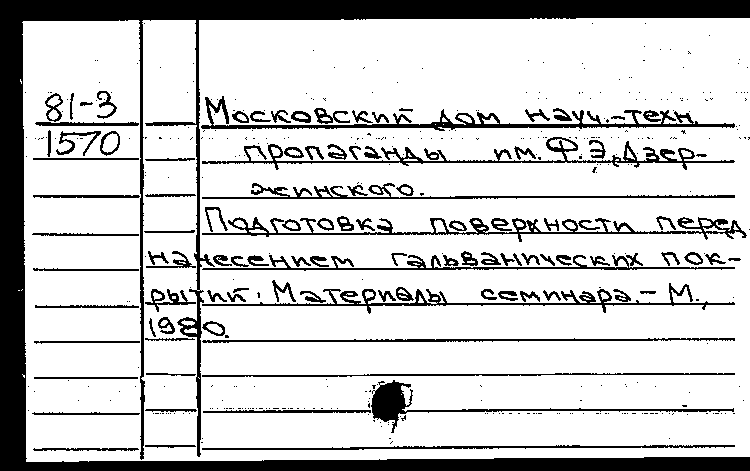 81-3
1570
Московский дом науч.-техн.
пропаганды им. Ф.Э.Дзер-
жинского.
Подготовка поверхности перед
нанесением гальванических пок-
рытий: Материалы семинара.- М.,
1980.